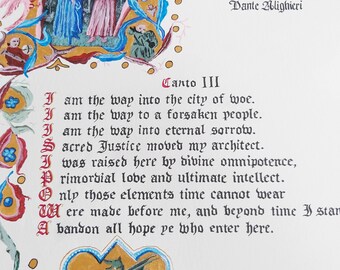 Dante Alighieri
Canto III
I am the way into the city of woe.
I am the way to a forsaken people.
I am the way into eternal sorrow.
Sacred Justice moved my architect.
I was raised here by divine omnipotence,
Primordial love and ultimate intellect.
Only those elements time cannot wear
Were made before me, and beyond time I stan
Abandon all hope ye who enter here.